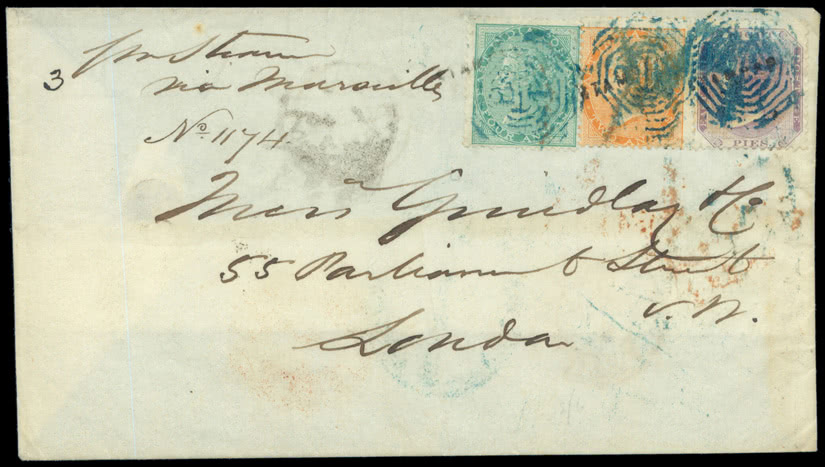 per Steamer
via Marseilles
3
No. 1174
Messrs Grindlay & Co
55 Parliament Street
S. W.
London
FOUR AN
PIES